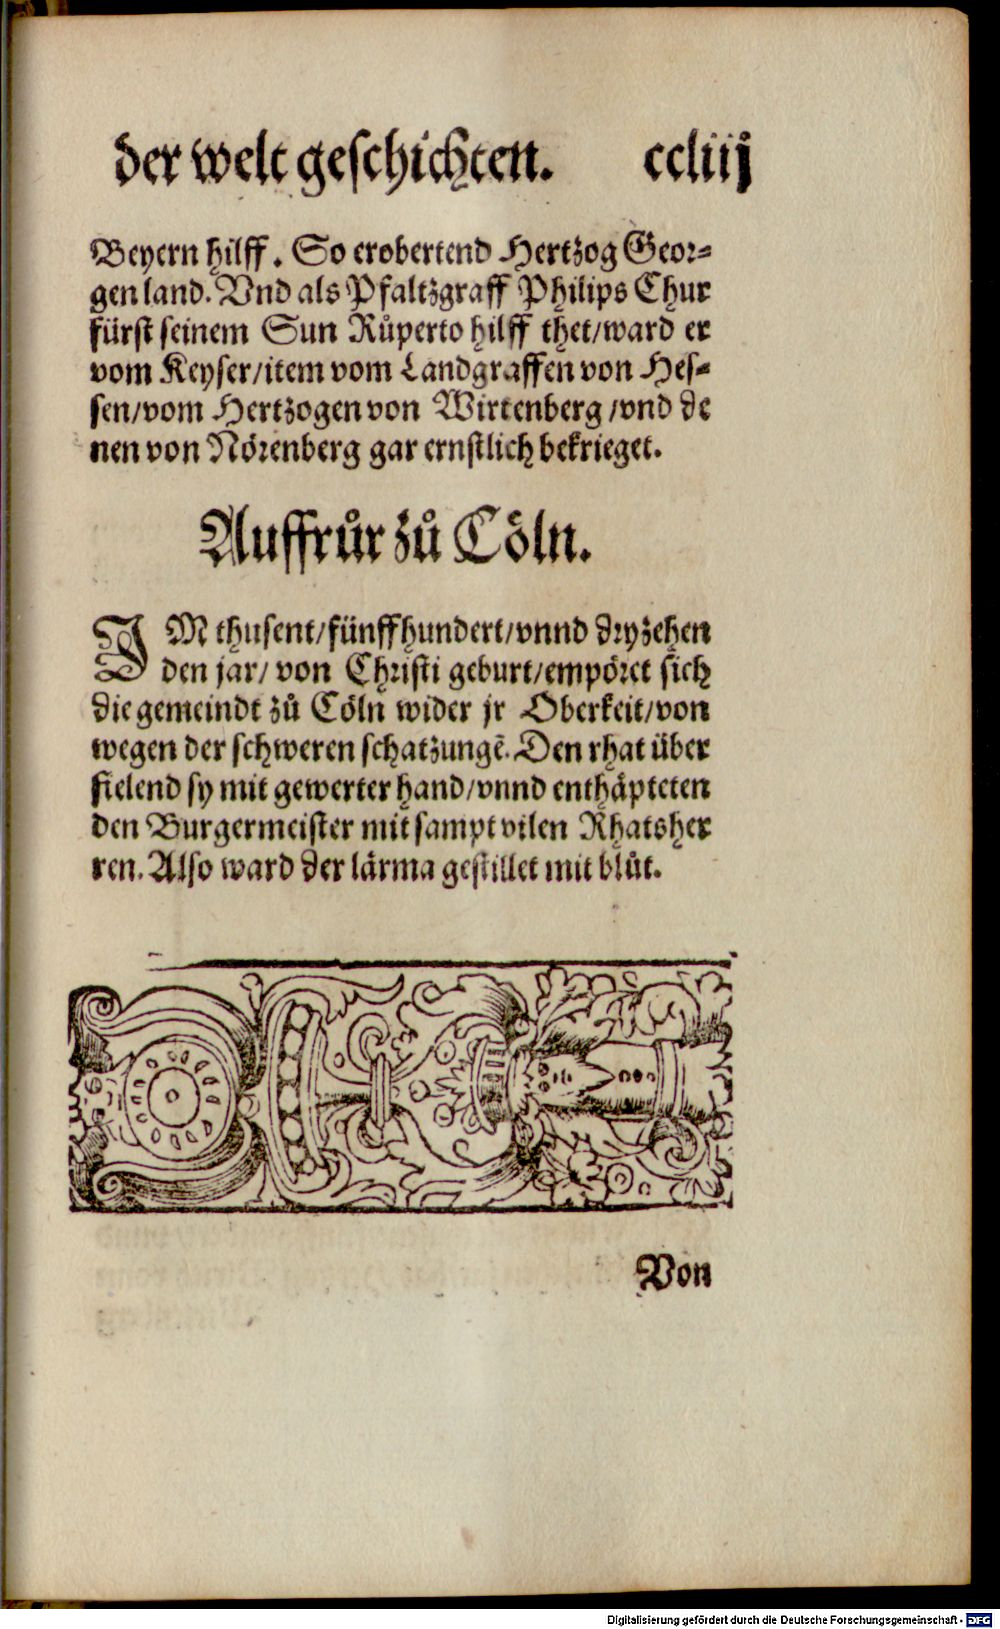 der welt geschichten. ccliij
Beyern hilff. So erobertend Hertzog Geor⸗
gen land. Vnd als Pfaltzgraff Philips Chur
fürst seinem Sun Růperto hilff thet/ward er
vom Keyser/item vom Landgraffen von Hes⸗
sen/vom Hertzogen von Wirtenberg/vnd de
nen von Nörenberg gar ernstlich bekrieget.
Auffrůr zů Cöln.
IM thusent/fünffhundert/vnnd dryzehen
den jar/ von Christi geburt/empöret sich
die gemeindt zů Cöln wider jr Oberkeit/von
wegen der schweren schatzungē. Den rhat über
fielend sy mit gewerter hand/vnnd enthäpteten
den Burgermeister mit sampt vilen Rhatsher
ren. Also ward der lärma gestillet mit blůt.
Von
Digitalisierung gefördert durch die Deutsche Forschungsgemeinschaft - DFG